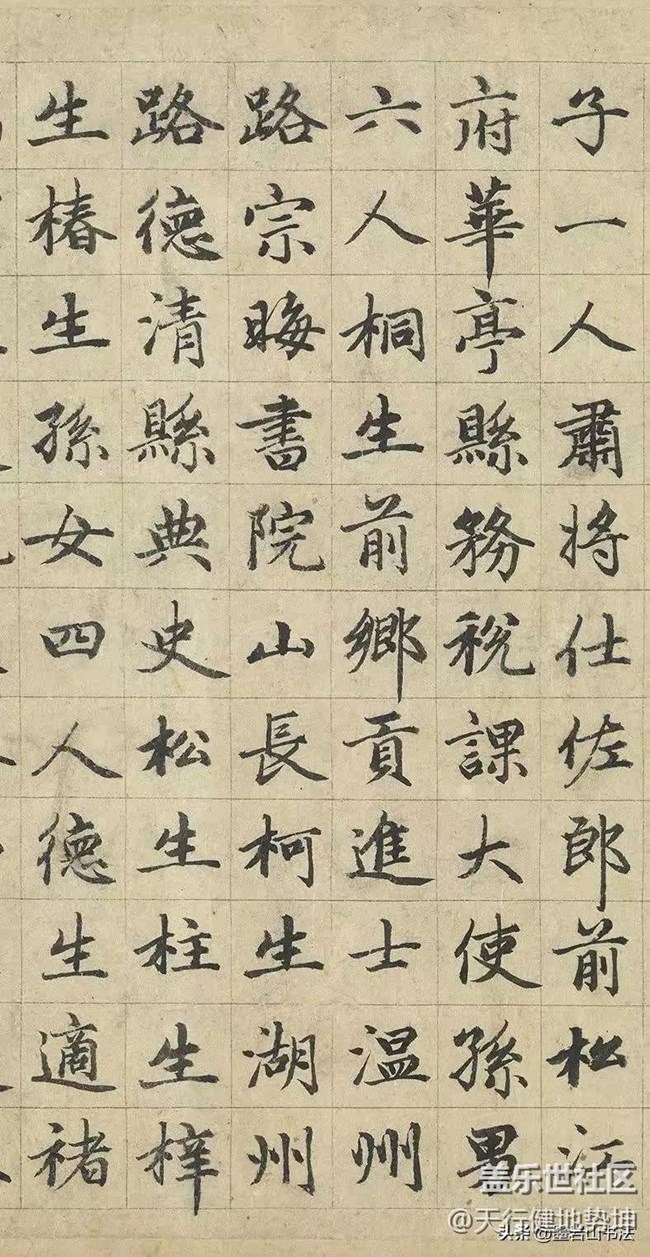 子一人肅將仕佐郎前松江
府華亭縣務稅課大使孫男
六人桐生前鄉貢進士温州
路宗晦書院山長柯生湖州
路德清縣典史松生柱生梓
生椿生孫女四人德生適褚
盖乐世社区
@天行健地势坤
头条@墨岩山书法